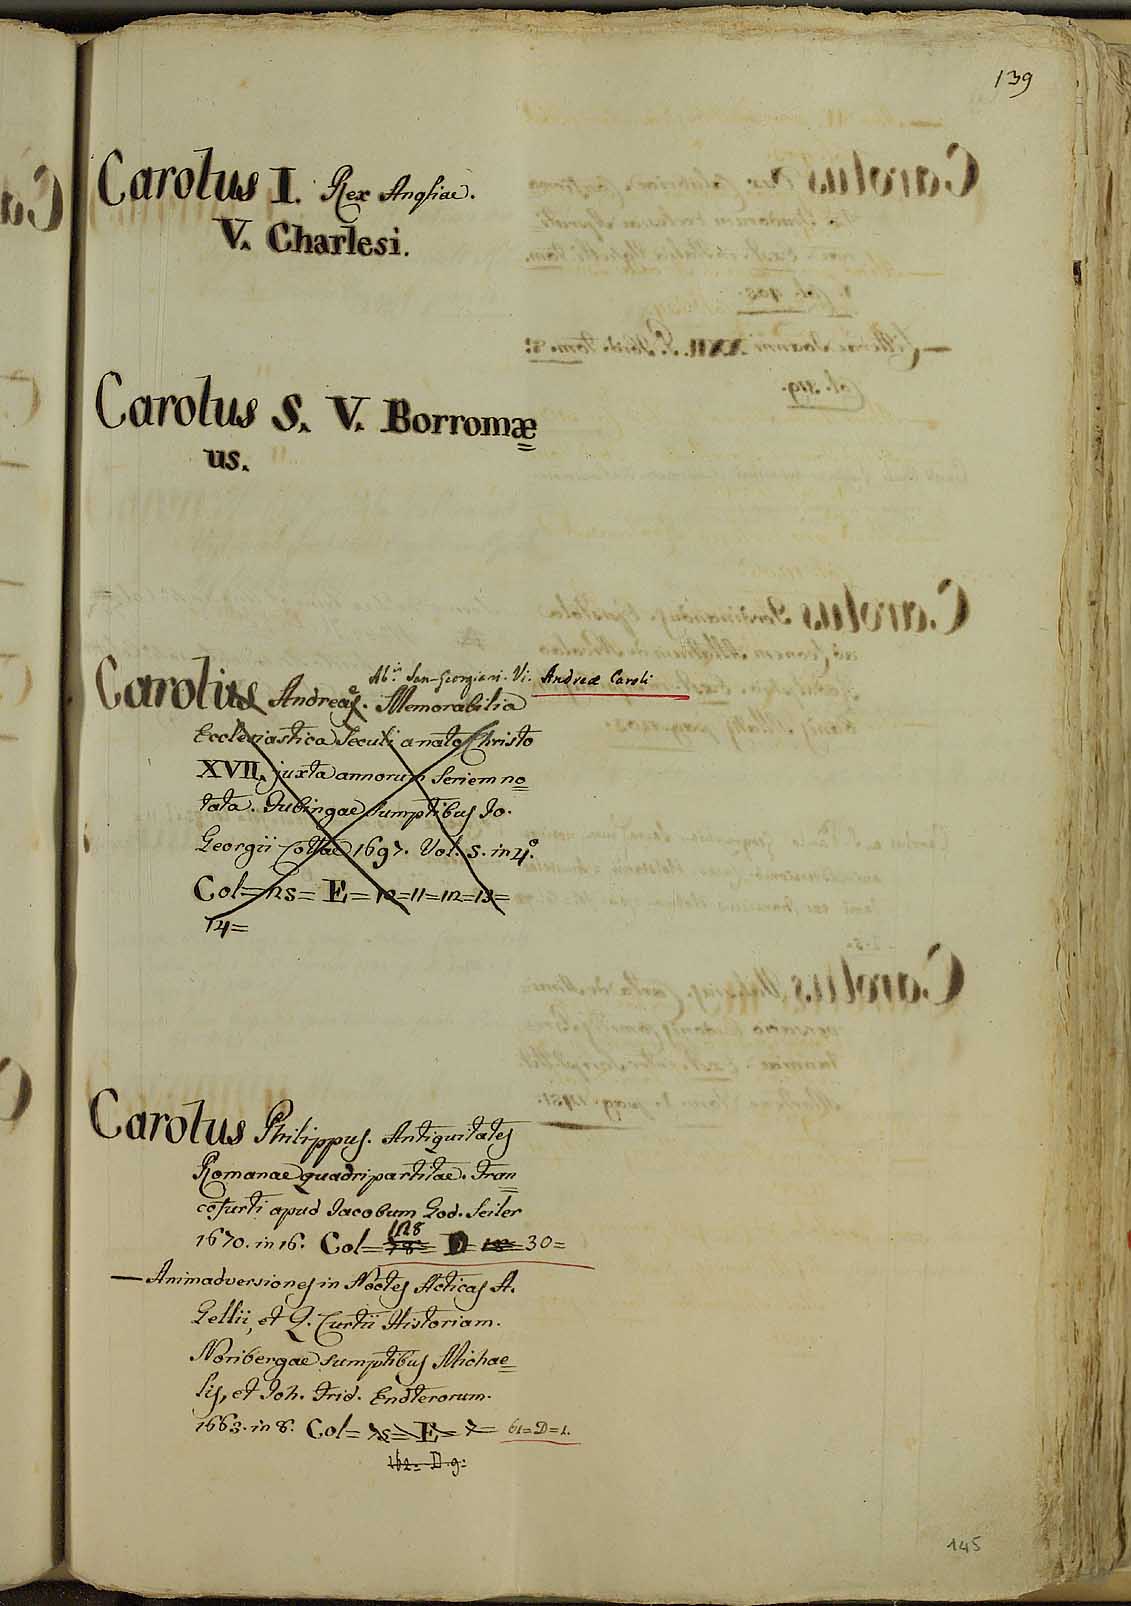 139
Carolus I. Rex Angliae.
V. Charlesi.
Carolus S. V. Borromæ=
us.
Ab. San-Georgiani. Vi. Andreæ Caroli
Carolus Andreas. Memorabilia
Ecclesiastica Seculi a nato Christo
XVII. juxta annorum Seriem no=
tata. Tubingae sumptibus Jo.
Georgii Cottae 1697. Vol. S. in 4°.
Col= 25= E= 10=11=12=13=
14=
Carolus Philippus. Antiquitates
Romanae quadripartitae. Fran=
cofurti apud Jacobum God. Seiler
128
1670. in 16. Col= 78= D= 30=
— Animadversiones in Noctes Atticas A.
Gellii, et Q. Curtii Historiam.
Noribergae sumptibus Michae=
lis, et Joh. Frid. Endterorum.
1663. in 8. Col= 75= E= 7= 61=D=1.
162= D. 9=
145